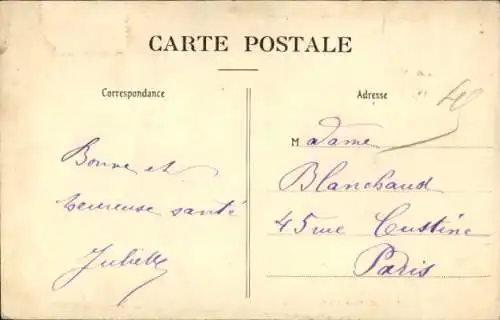 CARTE POSTALE
Correspondance
Bonne et
heureuse santé
Juliette
Adresse
Madame
Blanchaud
45 rue Custine
Paris